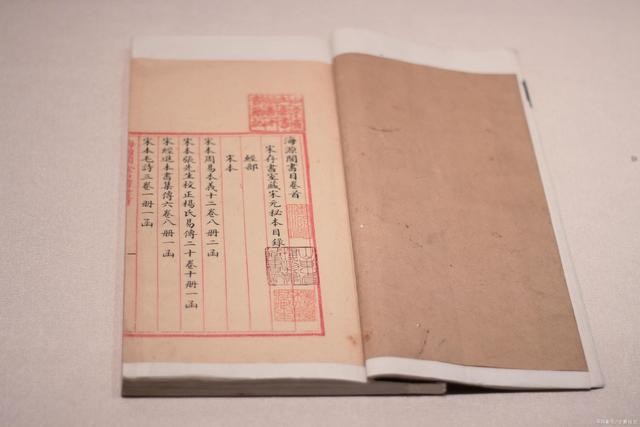 海源閣書目卷首
宋存書室藏宋元秘本目錄
經部
宋本
宋本周易本義十二卷八册二函
宋本張先生校正楊氏易傳二十卷十册一函
宋經進本書集傳六卷八册一函
宋本毛詩三卷一册一函